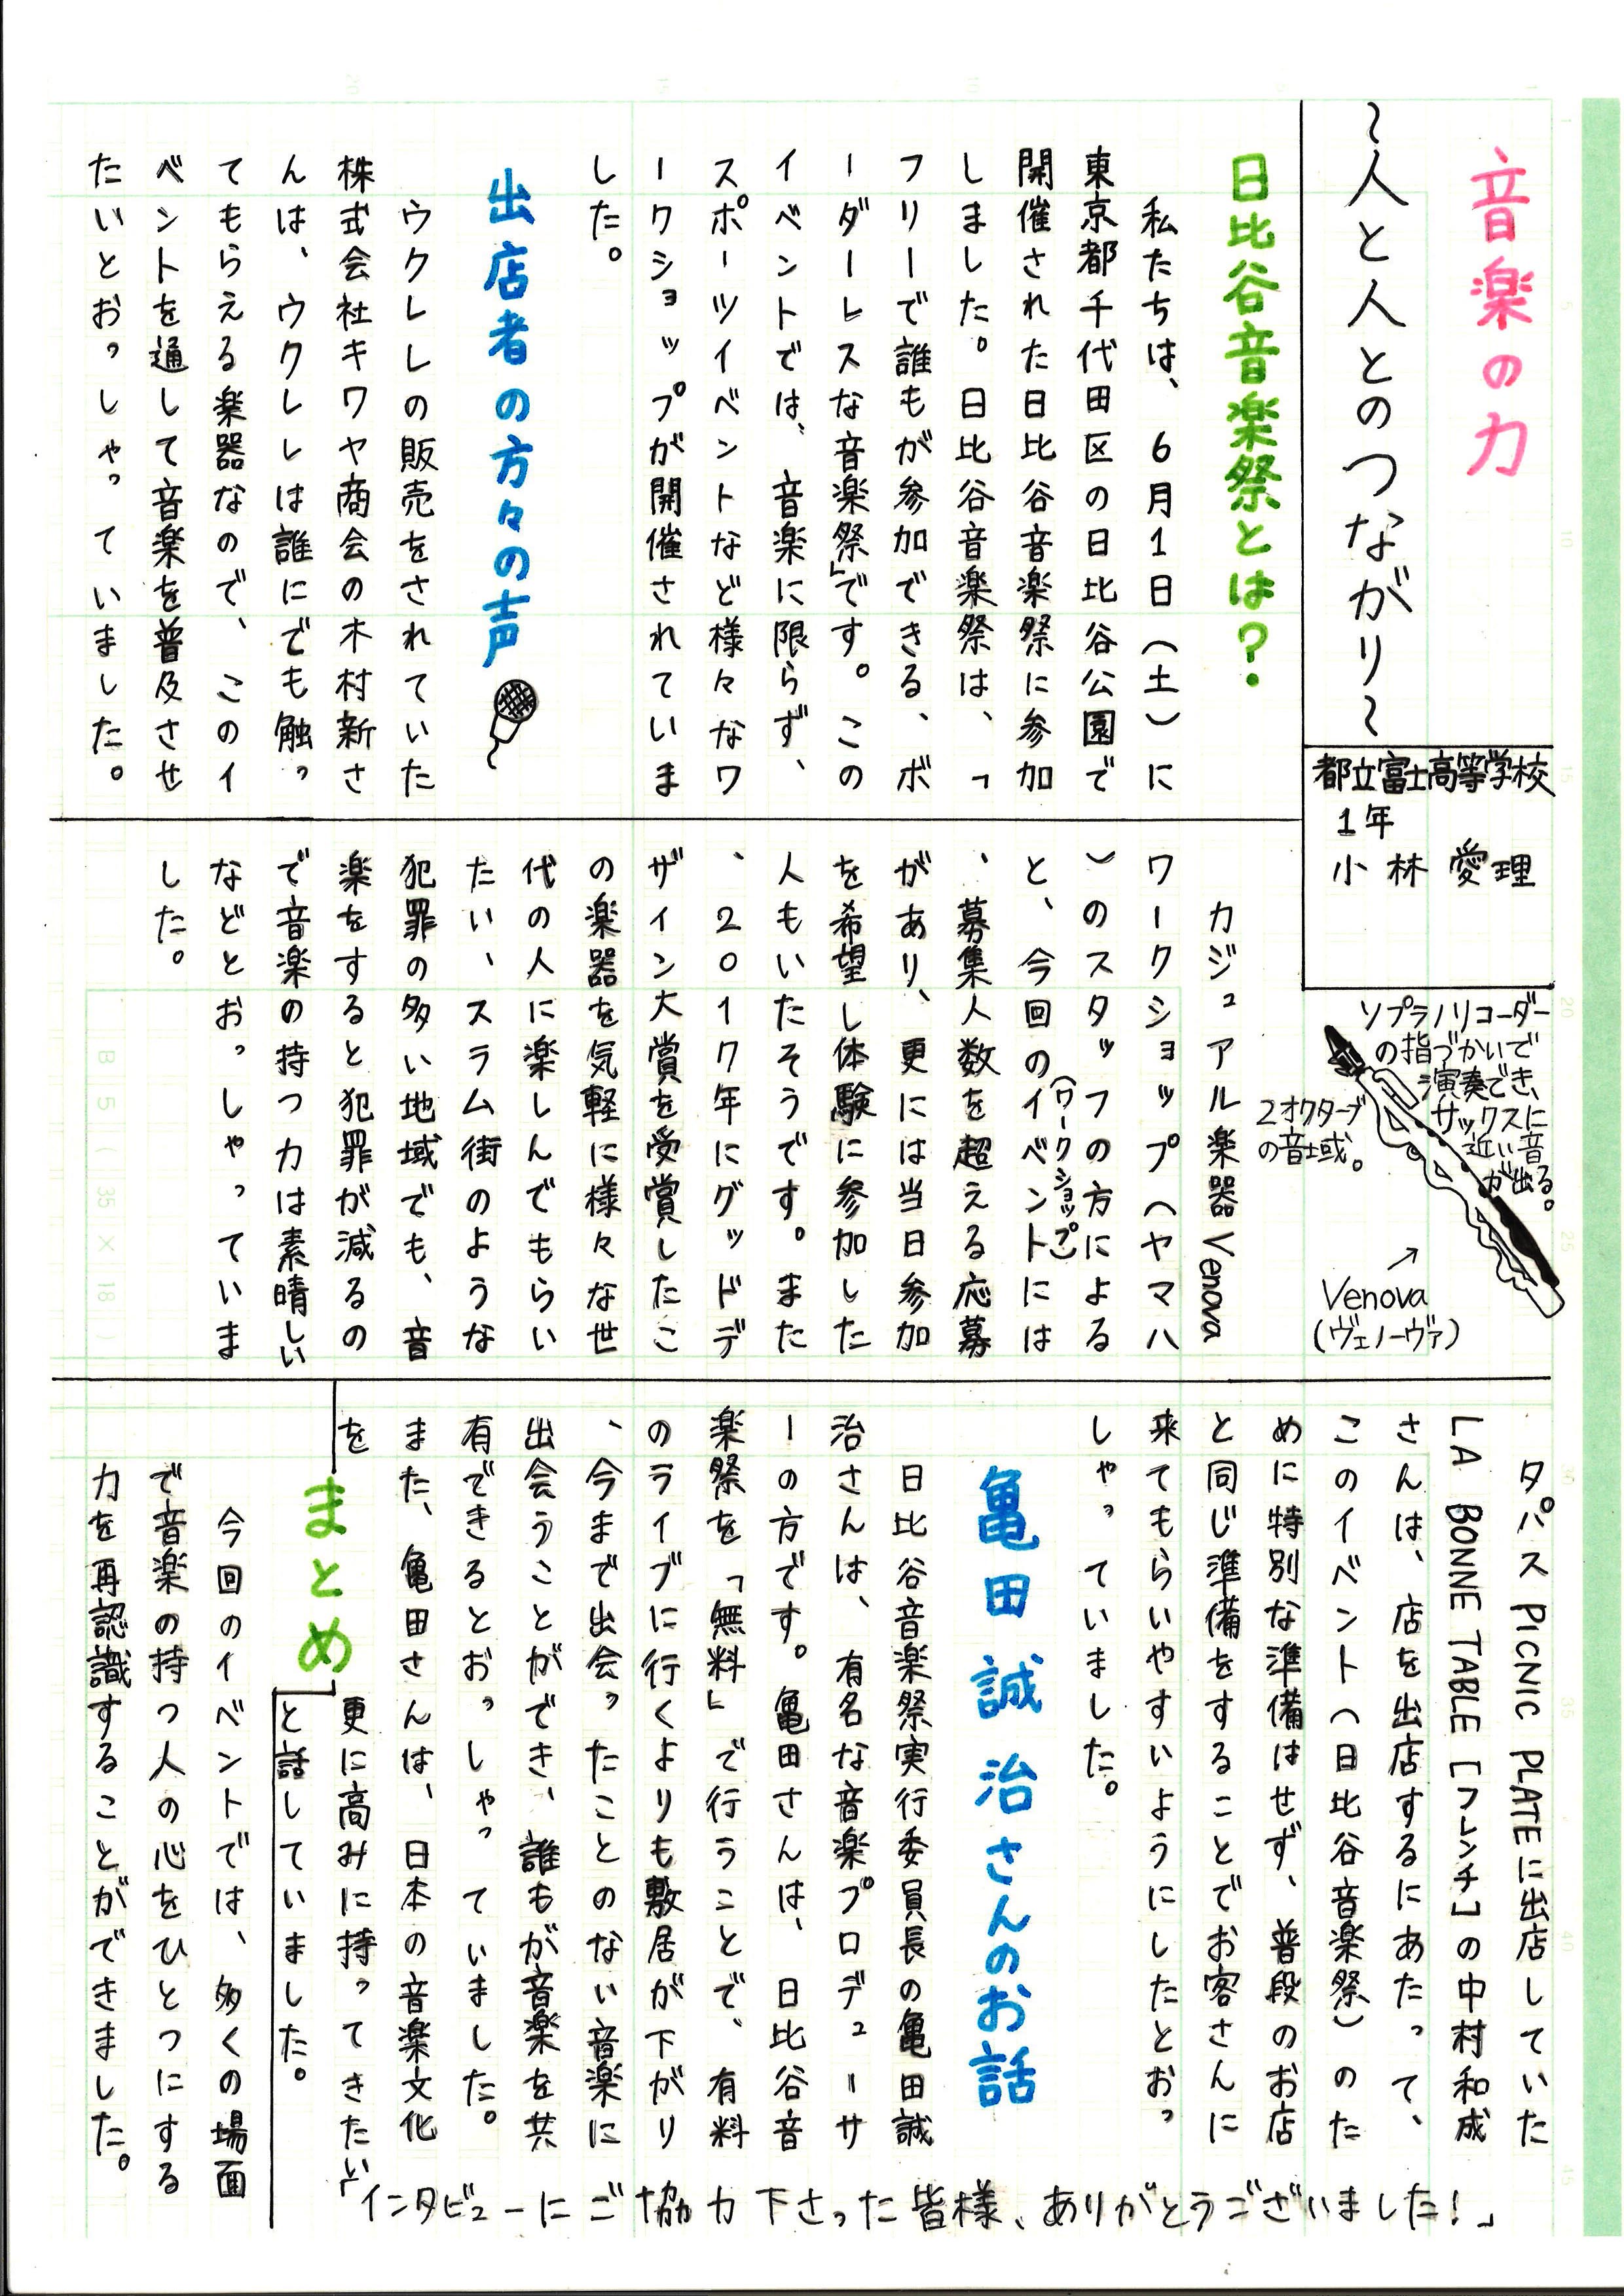 音楽の力
～人と人とのつながり～
都立富士高等学校
1年
小林 愛理
日比谷音楽祭とは？
私たちは、6月1日（土）に
東京都千代田区の日比谷公園で
開催された日比谷音楽祭に参加
しました。日比谷音楽祭は、「
フリーで誰もが参加できる、ボ
ーダーレスな音楽祭」です。この
イベントでは、音楽に限らず、
スポーツイベントなど様々なワ
ークショップが開催されていま
した。
出店者の方々の声
ウクレレの販売をされていた
株式会社キワヤ商会の木村新さ
んは、ウクレレは誰にでも触っ
てもらえる楽器なので、このイ
ベントを通して音楽を普及させ
たいとおっしゃっていました。
ソプラノリコーダー
の指づかいで
演奏でき、
サックスに
近い音
が出る。
2オクターブ
の音域。
Venova
(ヴェノーヴァ)
カジュアル楽器Venova
ワークショップ（ヤマハ
）のスタッフの方による
と、今回のイベント(ワークショップ)には
、募集人数を超える応募
があり、更には当日参加
を希望し体験に参加した
人もいたそうです。また
、2017年にグッドデ
ザイン大賞を受賞したこ
の楽器を気軽に様々な世
代の人に楽しんでもらい
たい、スラム街のような
犯罪の多い地域でも、音
楽をすると犯罪が減るの
で音楽の持つ力は素晴しい
などとおっしゃっていま
した。
タパスPICNIC PLATEに出店していた
LA BONNE TABLE［フレンチ］の中村和成
さんは、店を出店するにあたって、
このイベント（日比谷音楽祭）のた
めに特別な準備はせず、普段のお店
と同じ準備をすることでお客さんに
来てもらいやすいようにしたとおっ
しゃっていました。
亀田誠治さんのお話
日比谷音楽祭実行委員長の亀田誠
治さんは、有名な音楽プロデューサ
ーの方です。亀田さんは、日比谷音
楽祭を「無料」で行うことで、有料
のライブに行くよりも敷居が下がり
、今まで出会ったことのない音楽に
出会うことができ、誰もが音楽を共
有できるとおっしゃっていました。
また、亀田さんは、日本の音楽文化
を
更に高みに持ってきたい
と話していました。
まとめ
今回のイベントでは、多くの場面
で音楽の持つ人の心をひとつにする
力を再認識することができました。
「インタビューにご協力下さった皆様、ありがとうございました！」
B5(35×18)